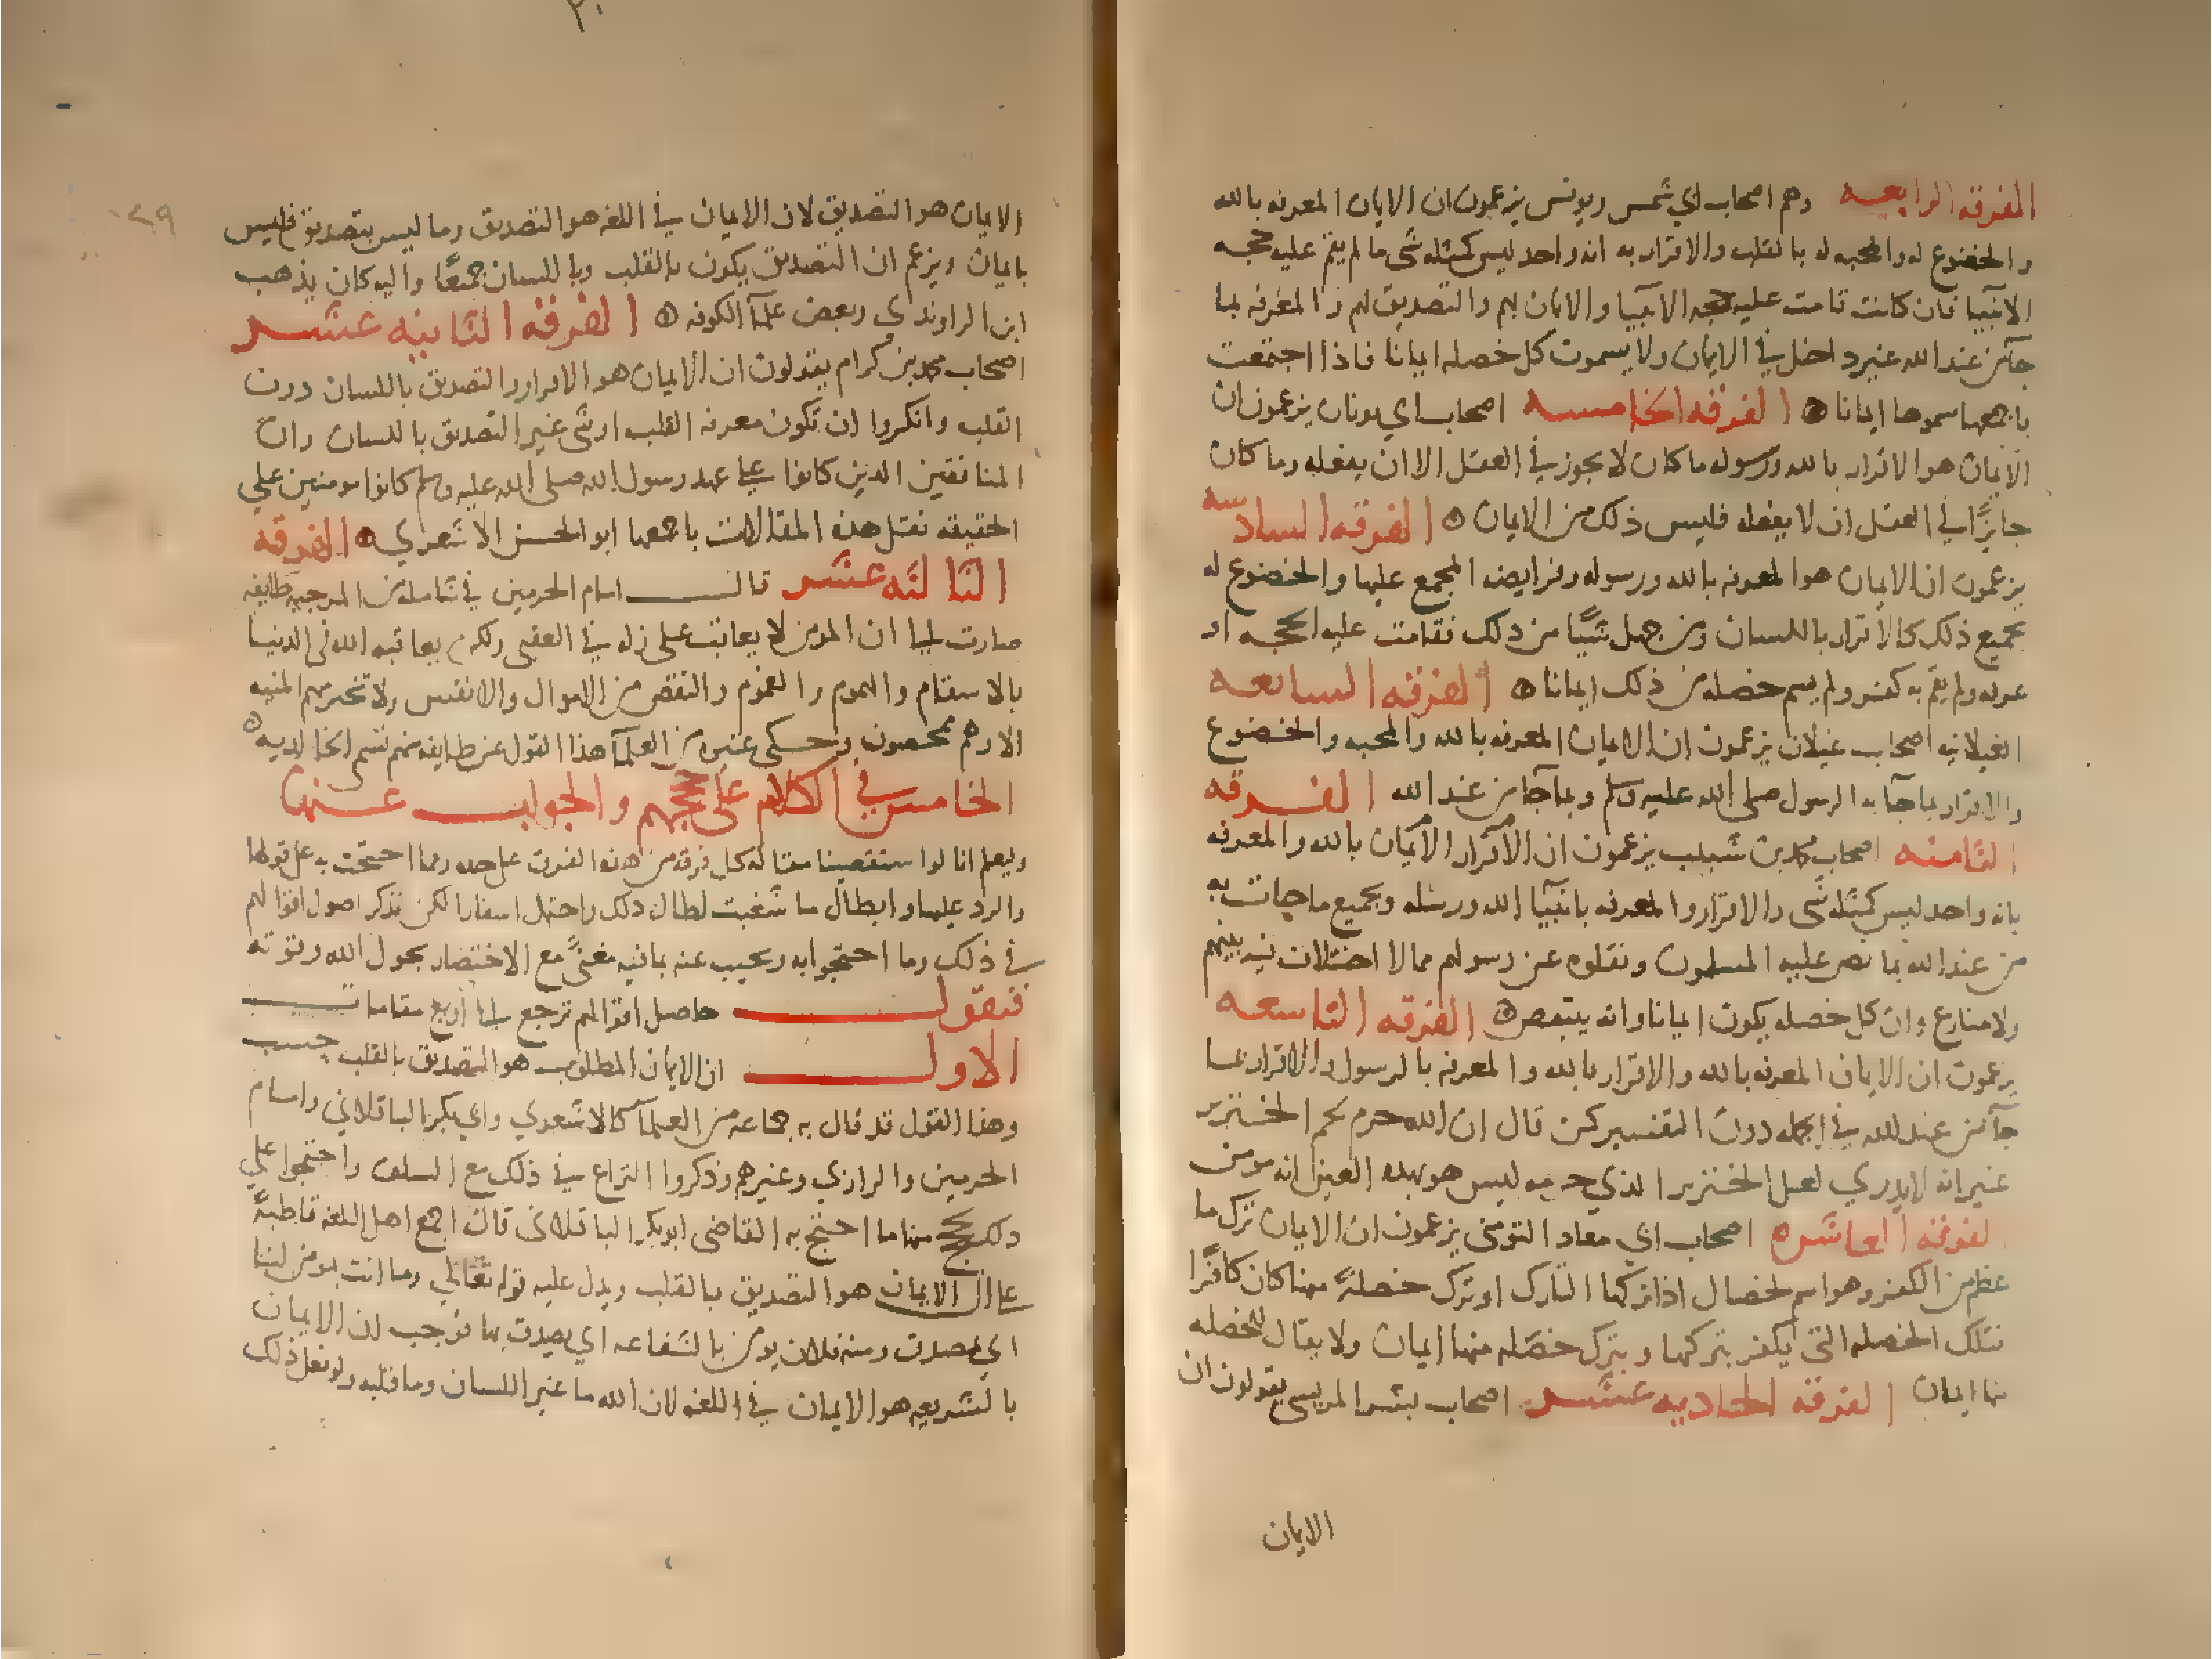 الفرقه الرابعه وهم اصحاب ابي شمس ويونس يزعمون ان الايمان المعرفه بالله
والخضوع له والمحبه له بالقلب والاقرار به انه واحد ليس كمثله شي ما لم يقم عليه حجه
الانبيا فان كانت قامت عليه حجه الانبيا والايمان بهم والتصديق لهم والمعرفه بما
جآ من عند الله غير داخل في الايمان ولا يسمون كل خصله ايمانا فاذا اجتمعت
باجمعها سموها ايمانا ه الفرقه الخامسه اصحاب ابي يونان يزعمون ان
الايمان هو الاقرار بالله ورسوله ما كان لا يجوز في العقل الا ان يفعله وما كان
جايزًا في العقل ان لا يفعله فليس ذلك من الايمان ه الفرقه السادسه
يزعمون ان الايمان هو المعرفه بالله ورسوله وفرايضه المجمع عليها والخضوع له
بجميع ذلك كالاقرار باللسان ومن جهل شيًا من ذلك فقامت عليه الحجه او
عرفه ولم يقر به كفر ولم يسم خصله من ذلك ايمانا ه الفرقه السابعه
الغيلانيه اصحاب غيلان يزعمون ان الايمان المعرفه بالله والمحبه والخضوع
والاقرار بما جآ به الرسول صلى الله عليه وسلم وبما جآ من عند الله الفرقه
الثامنه اصحاب محمد بن شبيب يزعمون ان الاقرار الايمان بالله والمعرفه
بانه واحد ليس كمثله شي والاقرار والمعرفه بانبيا الله ورسله وبجميع ما جات به
من عند الله بما نص عليه المسلمون ونقلوه عن رسولهم مما لا اختلاف فيه بينهم
ولا منازع وان كل خصله يكون ايمانا وانه يتبعض ه الفرقه التاسعه
يزعمون ان الايمان المعرفه بالله والاقرار بالله والمعرفه بالرسول والاقرار بما
جآ من عند الله في الجمله دون التفسير كمن قال ان الله حرم لحم الخنزير
غير انه لا يدري لعل الخنزير الذي حرمه ليس هو بهذه العين انه مومن
الفرقه العاشره اصحاب ابي معاد التومني يزعمون ان الايمان ترك ما
عظم من الكفر وهو اسم لخصال اذا تركها التارك او ترك خصلةً منها كان كافرًا
فتلك الخصله التي يكفر بتركها وبترك خصله منها ايمان ولا يقال للخصله
منها ايمان الفرقه الحاديه عشر اصحاب بشر المريسي يقولون ان
الايمان
٢٠
١٢٩
الايمان هو التصديق لان الايمان في اللغه هو التصديق وما ليس بتصديق فليس
بايمان ويزعم ان التصديق يكون بالقلب وباللسان جميعًا واليه كان يذهب
ابن الراوندي وبعض علمآ الكوفه ه الفرقه الثانيه عشر
اصحاب محمد بن كرام يقولون ان الايمان هو الاقرار والتصديق باللسان دون
القلب وانكروا ان تكون معرفه القلب او شي غير التصديق باللسان وان
المنافقين الذين كانوا على عهد رسول الله صلى الله عليه وسلم كانوا مومنين على
الحقيقه نقل هذه المقالات باجمعها ابو الحسن الاشعري ه الفرقه
الثالثه عشر قال امام الحرمين في شامله من المرجيه طايفه
صارت الي ان المومن لا يعاقب على زله في العقبى ولكن يعاقبه الله في الدنيا
بالاسقام والهموم والغموم والنقص من الاموال والانفس ولا تخترمهم المنيه
الا وهم ممحصون وحكى غيره من العلمآ هذا القول عن طايفه منهم تسم الخالديه ه
الخامس في الكلام على حججهم والجواب عنها
وليعلم انا لو استقصينا مقاله كل فرقه من هذه الفرق على حده وما احتجت به على قولها
والرد عليها وابطال ما شغبت لطال ذلك واحتمل اسفارا لكن نذكر اصول اقوالهم
في ذلك وما احتجوا به ونجيب عنه بما فيه مغنىً مع الاختصار بحول الله وقوته
فنقول حاصل اقوالهم ترجع الي اربع مقامات
الاول ان الايمان المطلوب هو التصديق بالقلب حسب
وهذا القول قد قال به جماعه من العلمآ كالاشعري وابي بكر الباقلاني وامام
الحرمين والرازي وغيرهم وذكروا النزاع في ذلك مع السلف واحتجوا على
ذلك بحجج منها ما احتج به القاضي ابو بكر الباقلاني قال اجمع اهل اللغه قاطبةً
على ان الايمان هو التصديق بالقلب ويدل عليه قوله تعالى وما انت بمومن لنا
اي بمصدق ومنه فلان يومن بالشفاعه اي يصدق بها فوجب ان الايمان
بالشريعه هو الايمان في اللغه لان الله ما غير اللسان وما قلبه ولو فعل ذلك